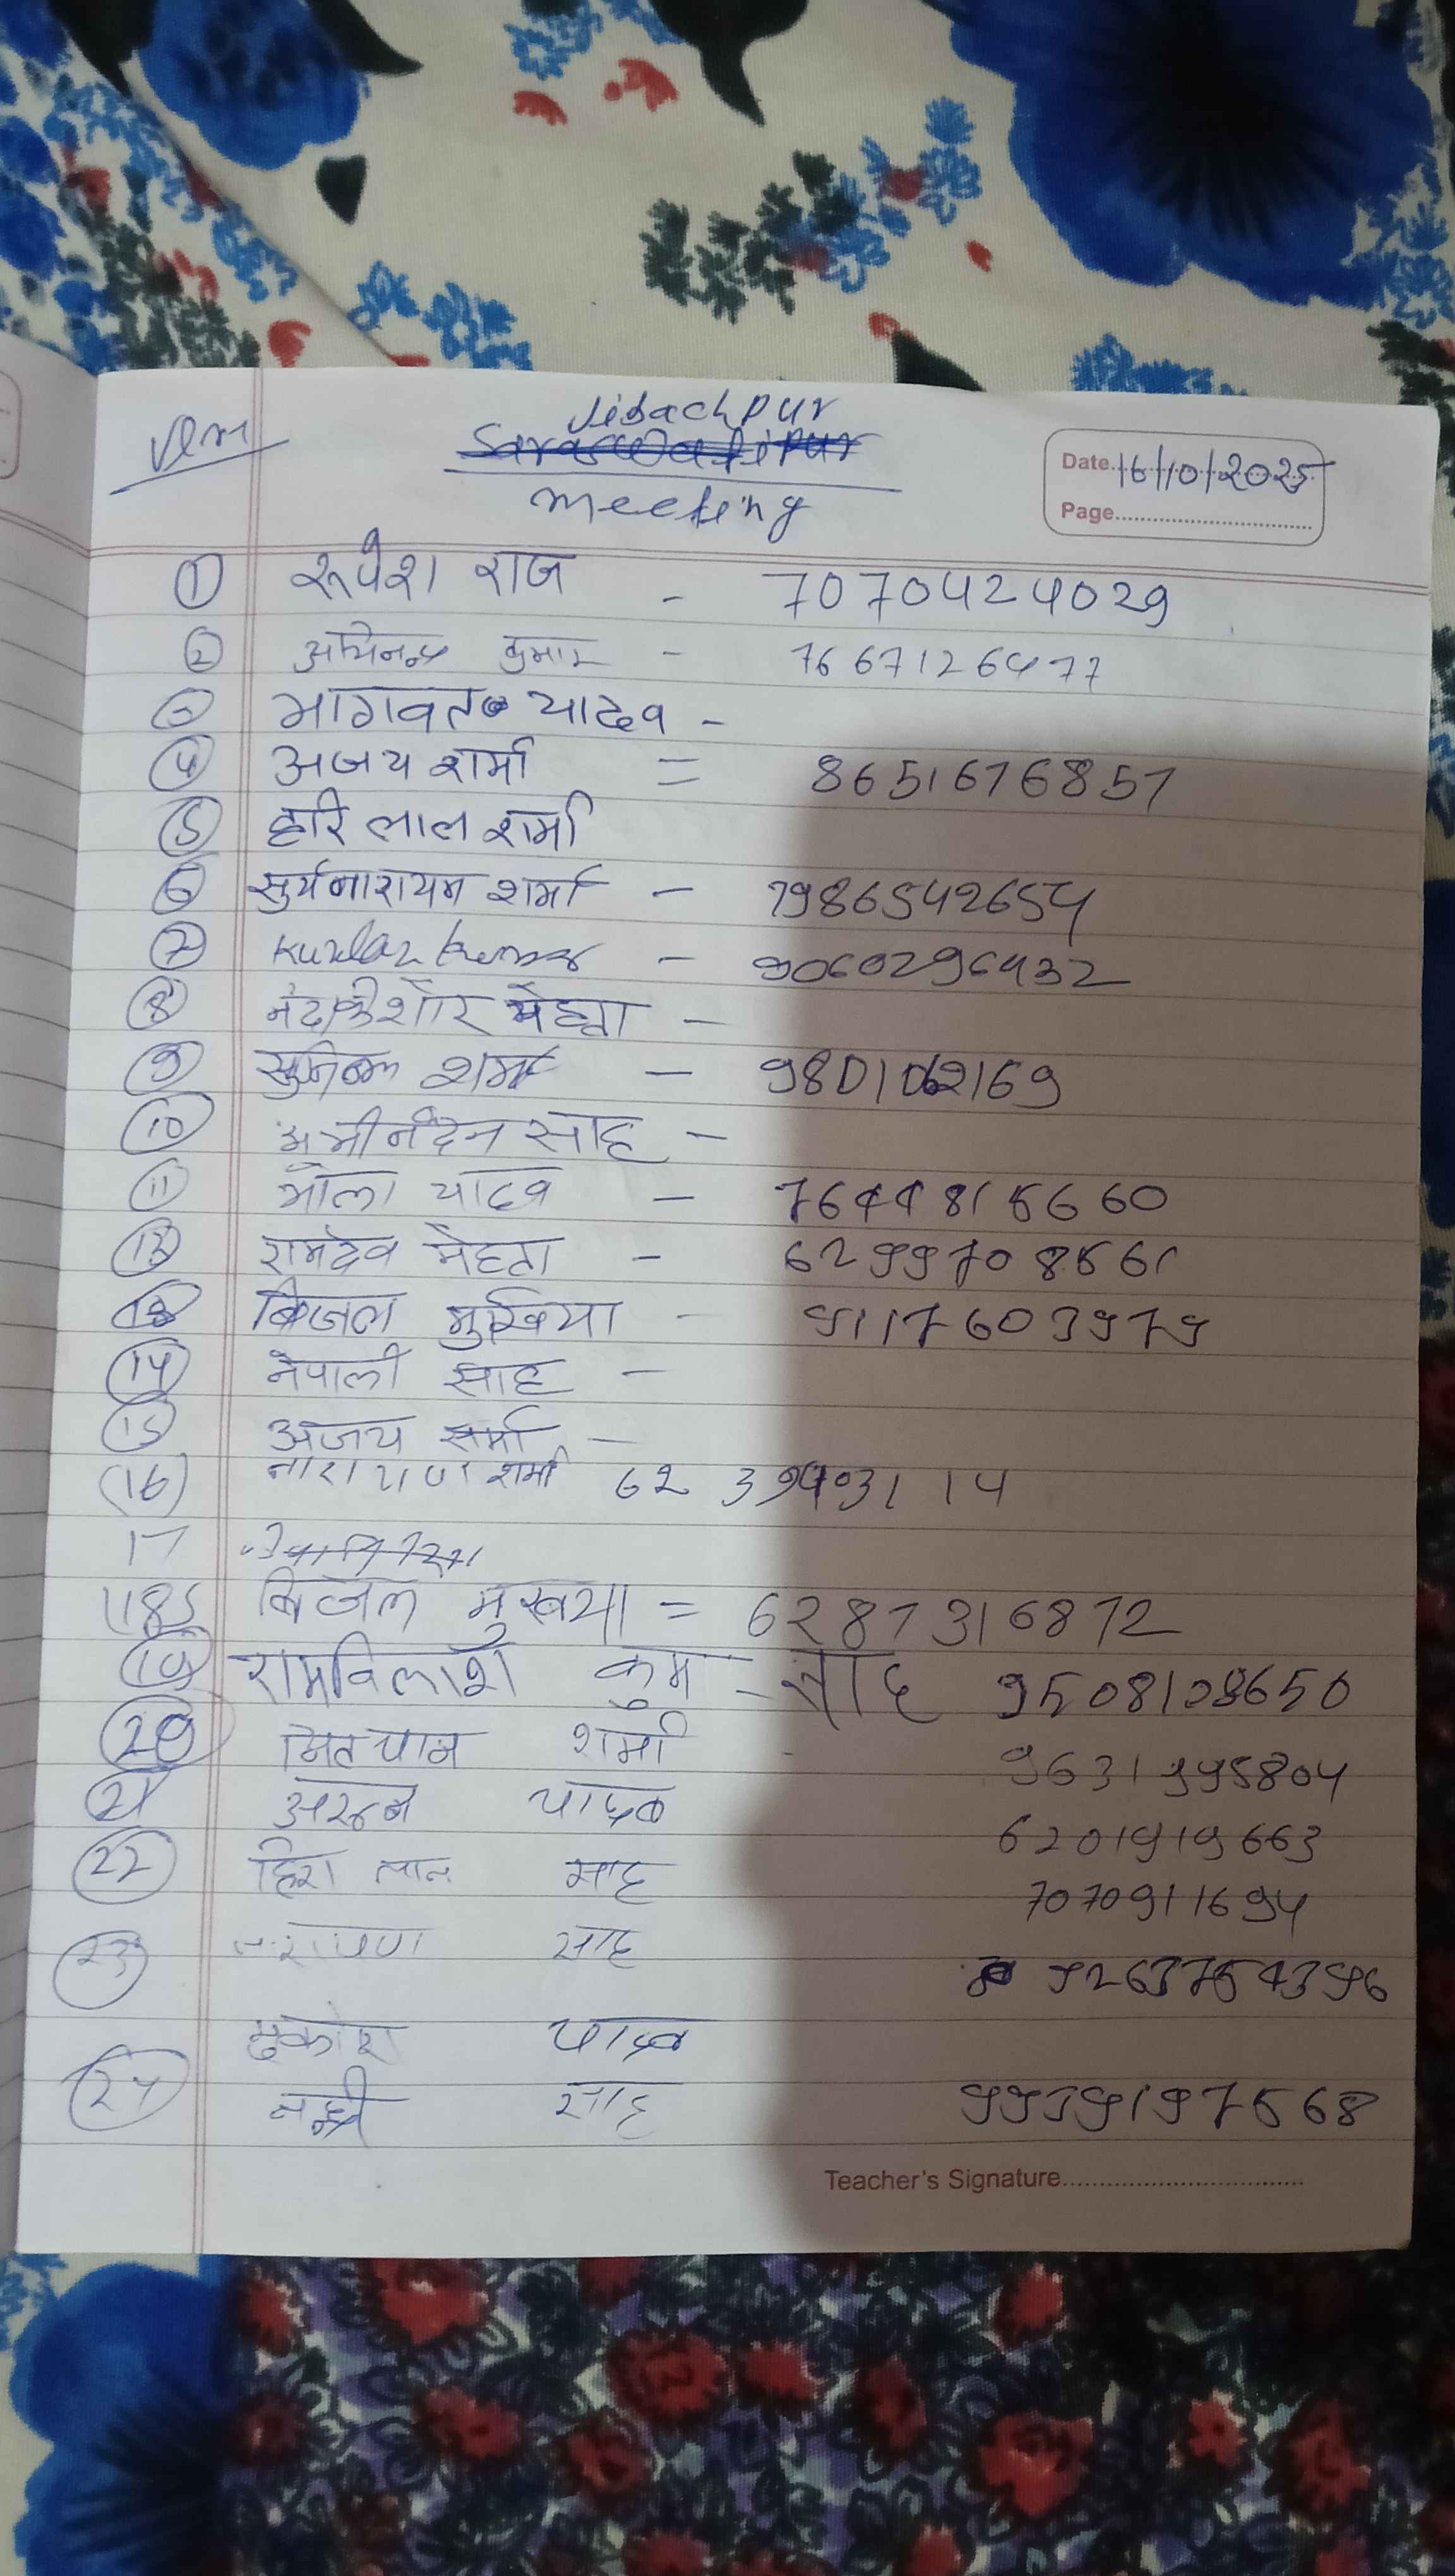 Jibachpur
Date 16/10/2025
meeting
Page
① रूपेश राज - 7070424029
② कुमार - 7667126477
③ भागवत यादव -
④ अजय शर्मा = 8651676857
⑤ हरि लाल शर्मा
⑥ सुर्यनारायन शर्मा - 7986542654
⑦ kumar - 9060296432
⑧ नंदकीशोर मेहता -
⑨ शर्मा - 9801062169
⑩ अभीनंदन साह -
⑪ भोला यादव - 7644815660
⑫ रामदेव मेहता - 6299708561
⑬ बिजल मुखिया - 9117603979
⑭ नेपाली साह -
⑮ अजय शर्मा -
(16) नारायण शर्मा 62 39403114
17
(18) बिजल मुखया = 6287316872
⑲ रामविलाश कुम - साह 9508128650
⑳ शर्मा 9631995804
21 अरून यादव 6201919663
22 हिरा लाल साह 7070911694
23 नारायण साह 9263754396
यादव
24 साह 9939197568
Teacher's Signature